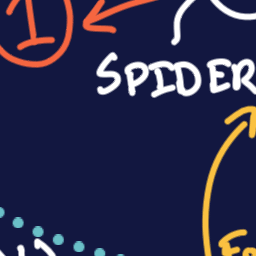 1
SPIDER